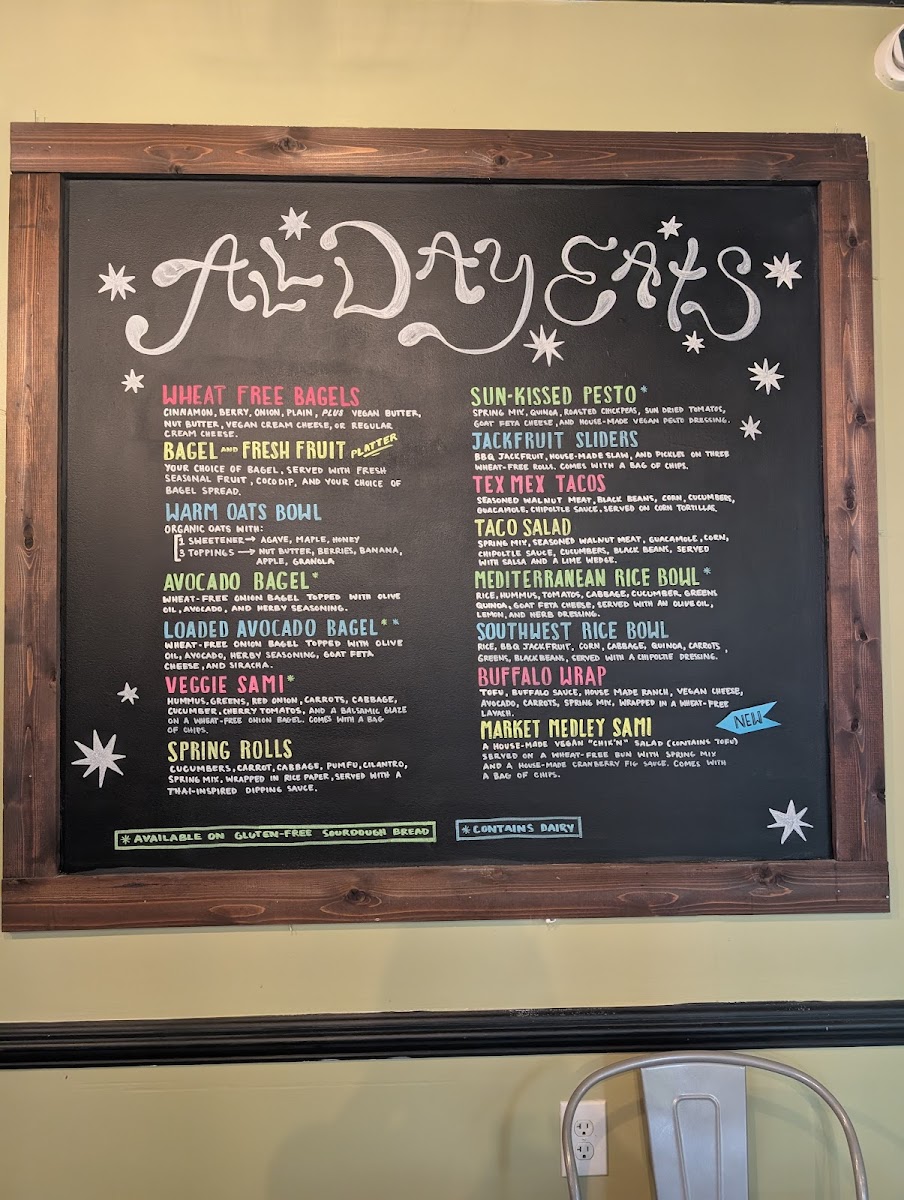 ALL DAY EATS
WHEAT FREE BAGELS
CINNAMON, BERRY, ONION, PLAIN, PLUS VEGAN BUTTER,
NUT BUTTER, VEGAN CREAM CHEESE, OR REGULAR
CREAM CHEESE.
BAGEL AND FRESH FRUIT PLATTER
YOUR CHOICE OF BAGEL, SERVED WITH FRESH
SEASONAL FRUIT, COCODIP, AND YOUR CHOICE OF
BAGEL SPREAD.
WARM OATS BOWL
ORGANIC OATS WITH:
1 SWEETENER → AGAVE, MAPLE, HONEY
3 TOPPINGS → NUT BUTTER, BERRIES, BANANA,
APPLE, GRANOLA
AVOCADO BAGEL*
WHEAT-FREE ONION BAGEL TOPPED WITH OLIVE
OIL, AVOCADO, AND HERBY SEASONING.
LOADED AVOCADO BAGEL**
WHEAT-FREE ONION BAGEL TOPPED WITH OLIVE
OIL, AVOCADO, HERBY SEASONING, GOAT FETA
CHEESE, AND SIRACHA.
VEGGIE SAMI*
HUMMUS, GREENS, RED ONION, CARROTS, CABBAGE,
CUCUMBER, CHERRY TOMATOS, AND A BALSAMIC GLAZE
ON A WHEAT-FREE ONION BAGEL. COMES WITH A BAG
OF CHIPS.
SPRING ROLLS
CUCUMBERS, CARROT, CABBAGE, PUMFU, CILANTRO,
SPRING MIX, WRAPPED IN RICE PAPER, SERVED WITH A
THAI-INSPIRED DIPPING SAUCE.
* AVAILABLE ON GLUTEN-FREE SOURDOUGH BREAD
SUN-KISSED PESTO*
SPRING MIX, QUINOA, ROASTED CHICKPEAS, SUN DRIED TOMATOS,
GOAT FETA CHEESE, AND HOUSE-MADE VEGAN PESTO DRESSING.
JACKFRUIT SLIDERS
BBQ JACKFRUIT, HOUSE-MADE SLAW, AND PICKLES ON THREE
WHEAT-FREE ROLLS. COMES WITH A BAG OF CHIPS.
TEX MEX TACOS
SEASONED WALNUT MEAT, BLACK BEANS, CORN, CUCUMBERS,
GUACAMOLE, CHIPOLTLE SAUCE, SERVED ON CORN TORTILLAS.
TACO SALAD
SPRING MIX, SEASONED WALNUT MEAT, GUACAMOLE, CORN,
CHIPOLTLE SAUCE, CUCUMBERS, BLACK BEANS, SERVED
WITH SALSA AND A LIME WEDGE.
MEDITERRANEAN RICE BOWL*
RICE, HUMMUS, TOMATOS, CABBAGE, CUCUMBER, GREENS
QUINOA, GOAT FETA CHEESE, SERVED WITH AN OLIVE OIL,
LEMON, AND HERB DRESSING.
SOUTHWEST RICE BOWL
RICE, BBQ JACKFRUIT, CORN, CABBAGE, QUINOA, CARROTS,
GREENS, BLACK BEANS, SERVED WITH A CHIPOLTLE DRESSING.
BUFFALO WRAP
TOFU, BUFFALO SAUCE, HOUSE MADE RANCH, VEGAN CHEESE,
AVOCADO, CARROTS, SPRING MIX, WRAPPED IN A WHEAT-FREE
LAVASH.
MARKET MEDLEY SAMI NEW
A HOUSE-MADE VEGAN "CHIK'N" SALAD (CONTAINS TOFU)
SERVED ON A WHEAT-FREE BUN WITH SPRING MIX
AND A HOUSE-MADE CRANBERRY FIG SAUCE. COMES WITH
A BAG OF CHIPS.
* CONTAINS DAIRY